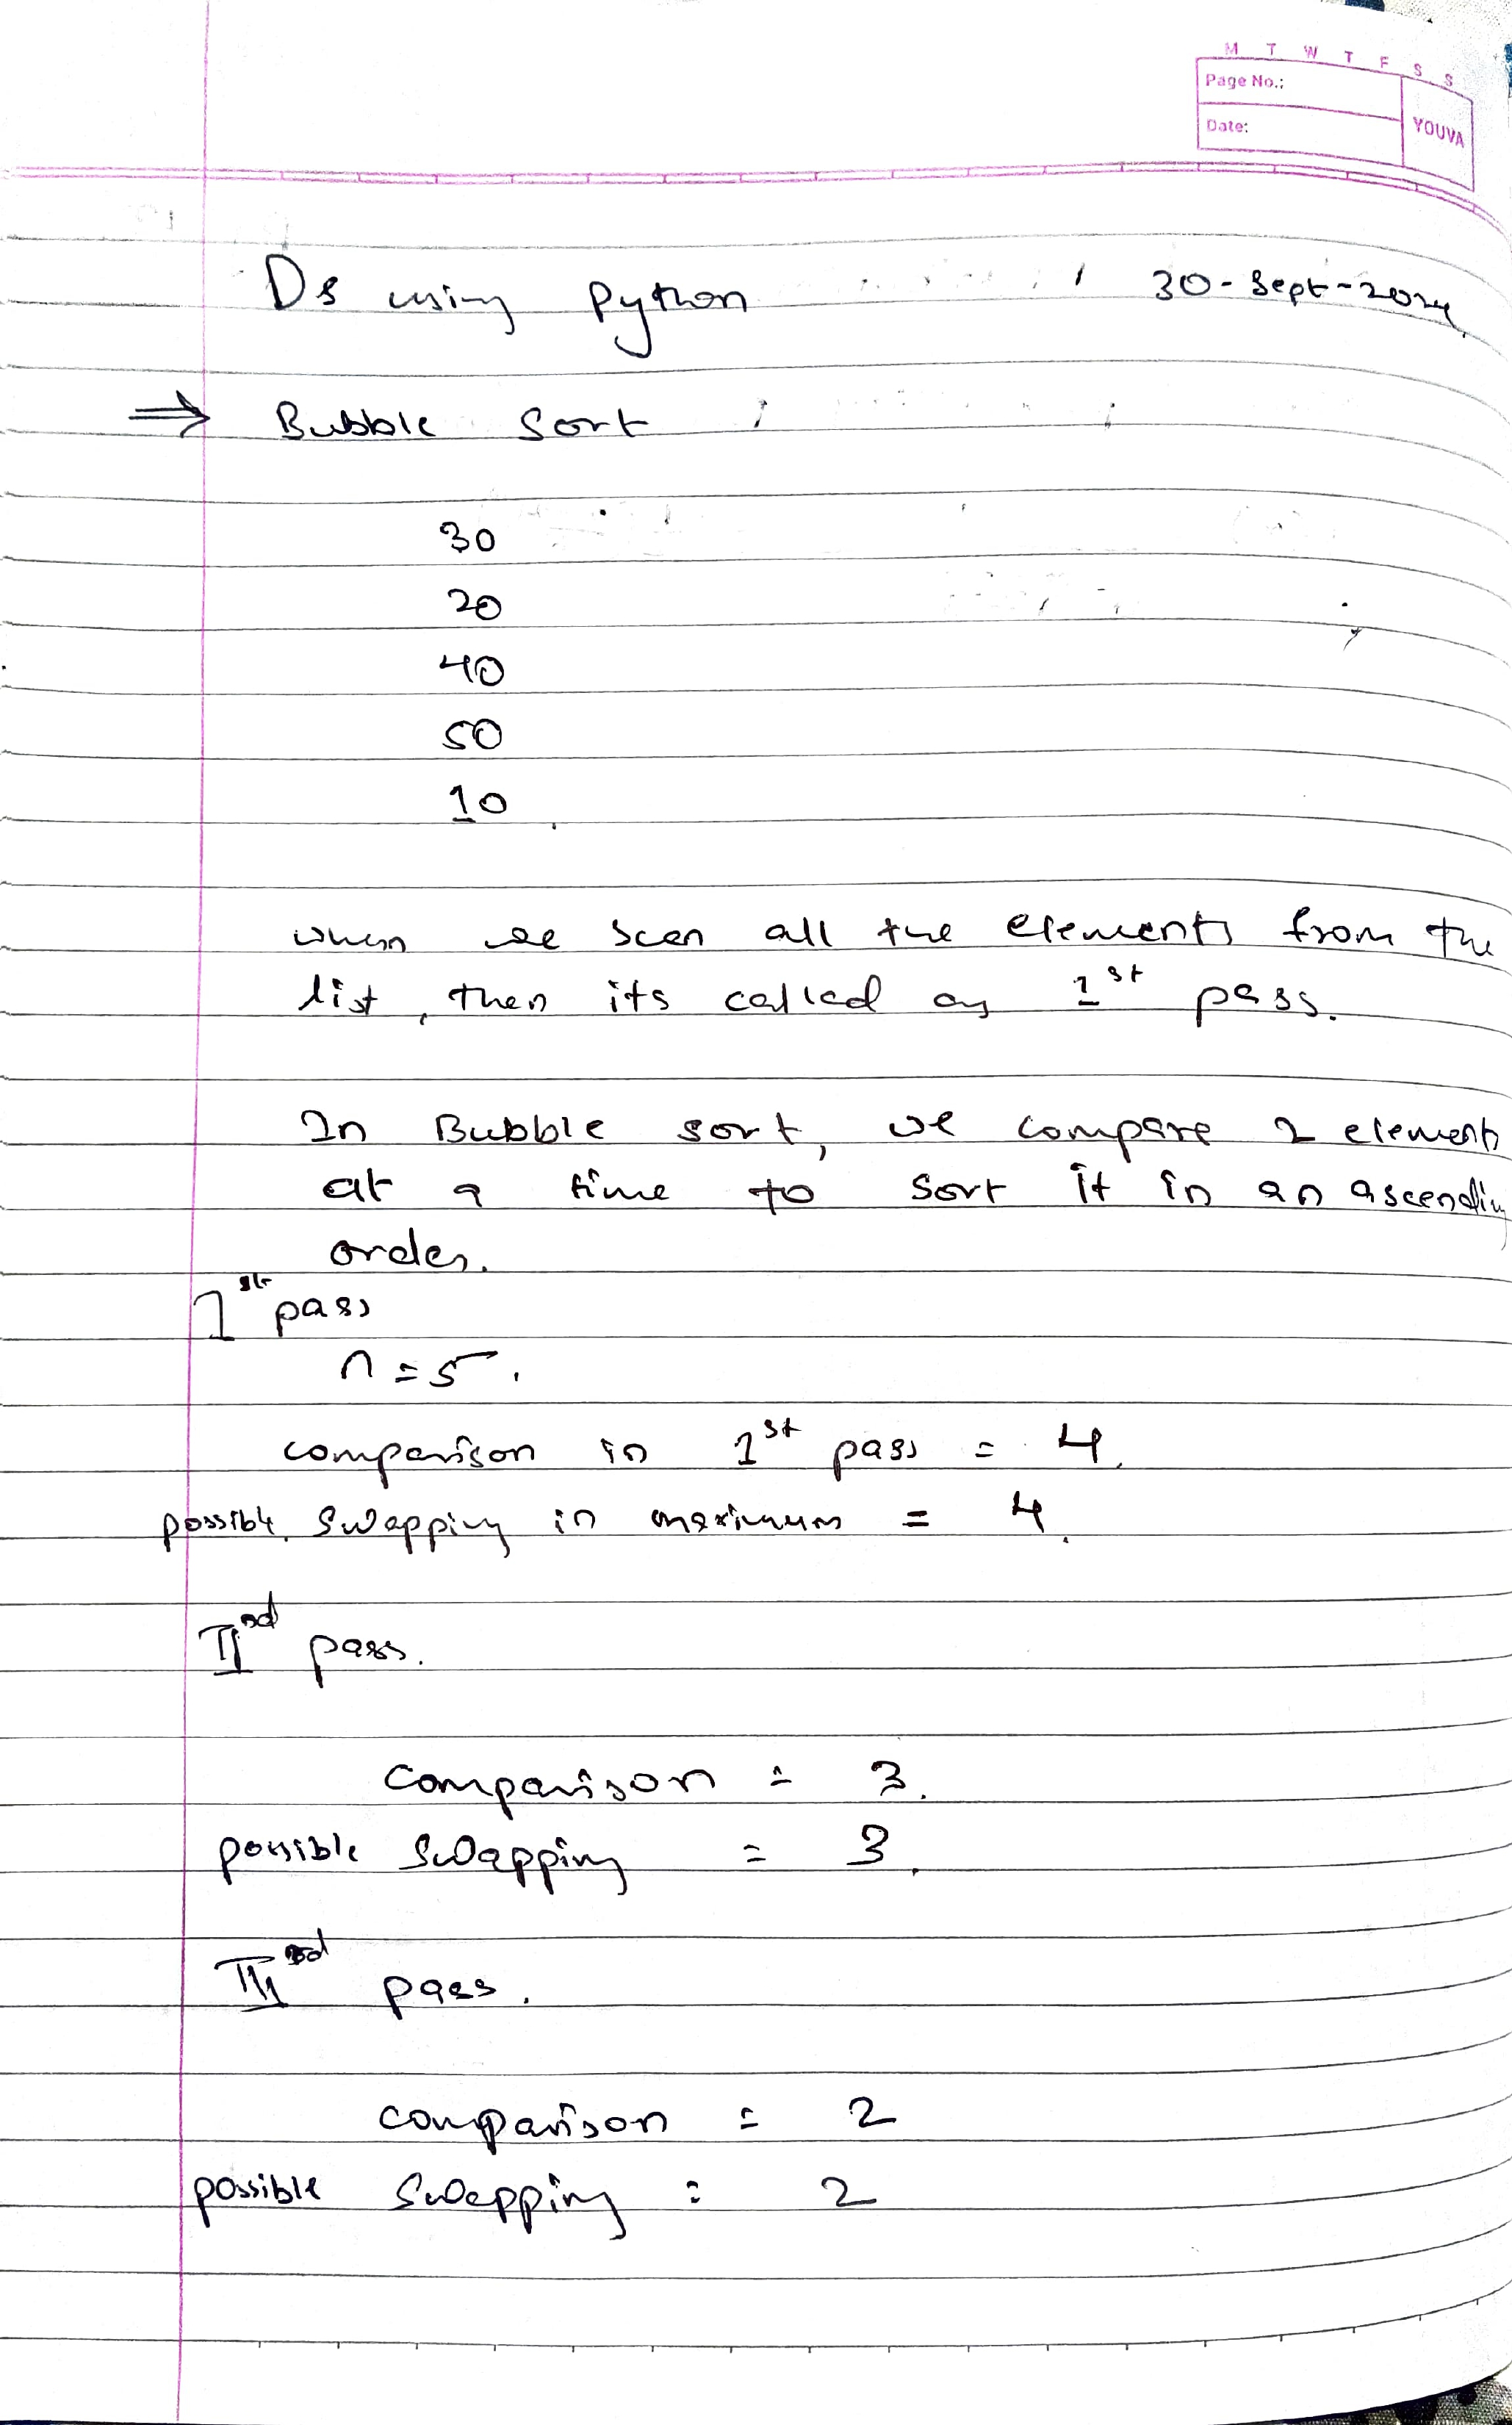 M T W T F S S
Page No.:
Date:
YOUVA
Ds using Python 30-Sept-2024
⇒ Bubble Sort
30
20
40
50
10
when we scan all the elements from the
list, then its called as 1st pass.
In Bubble sort, we compare 2 elements
at a time to sort it in an ascending
order.
1st pass
n = 5.
comparison in 1st pass = 4.
possible swapping in maximum = 4.
IInd pass.
comparison = 3.
possible swapping = 3.
III pass.
comparison = 2
possible swapping = 2